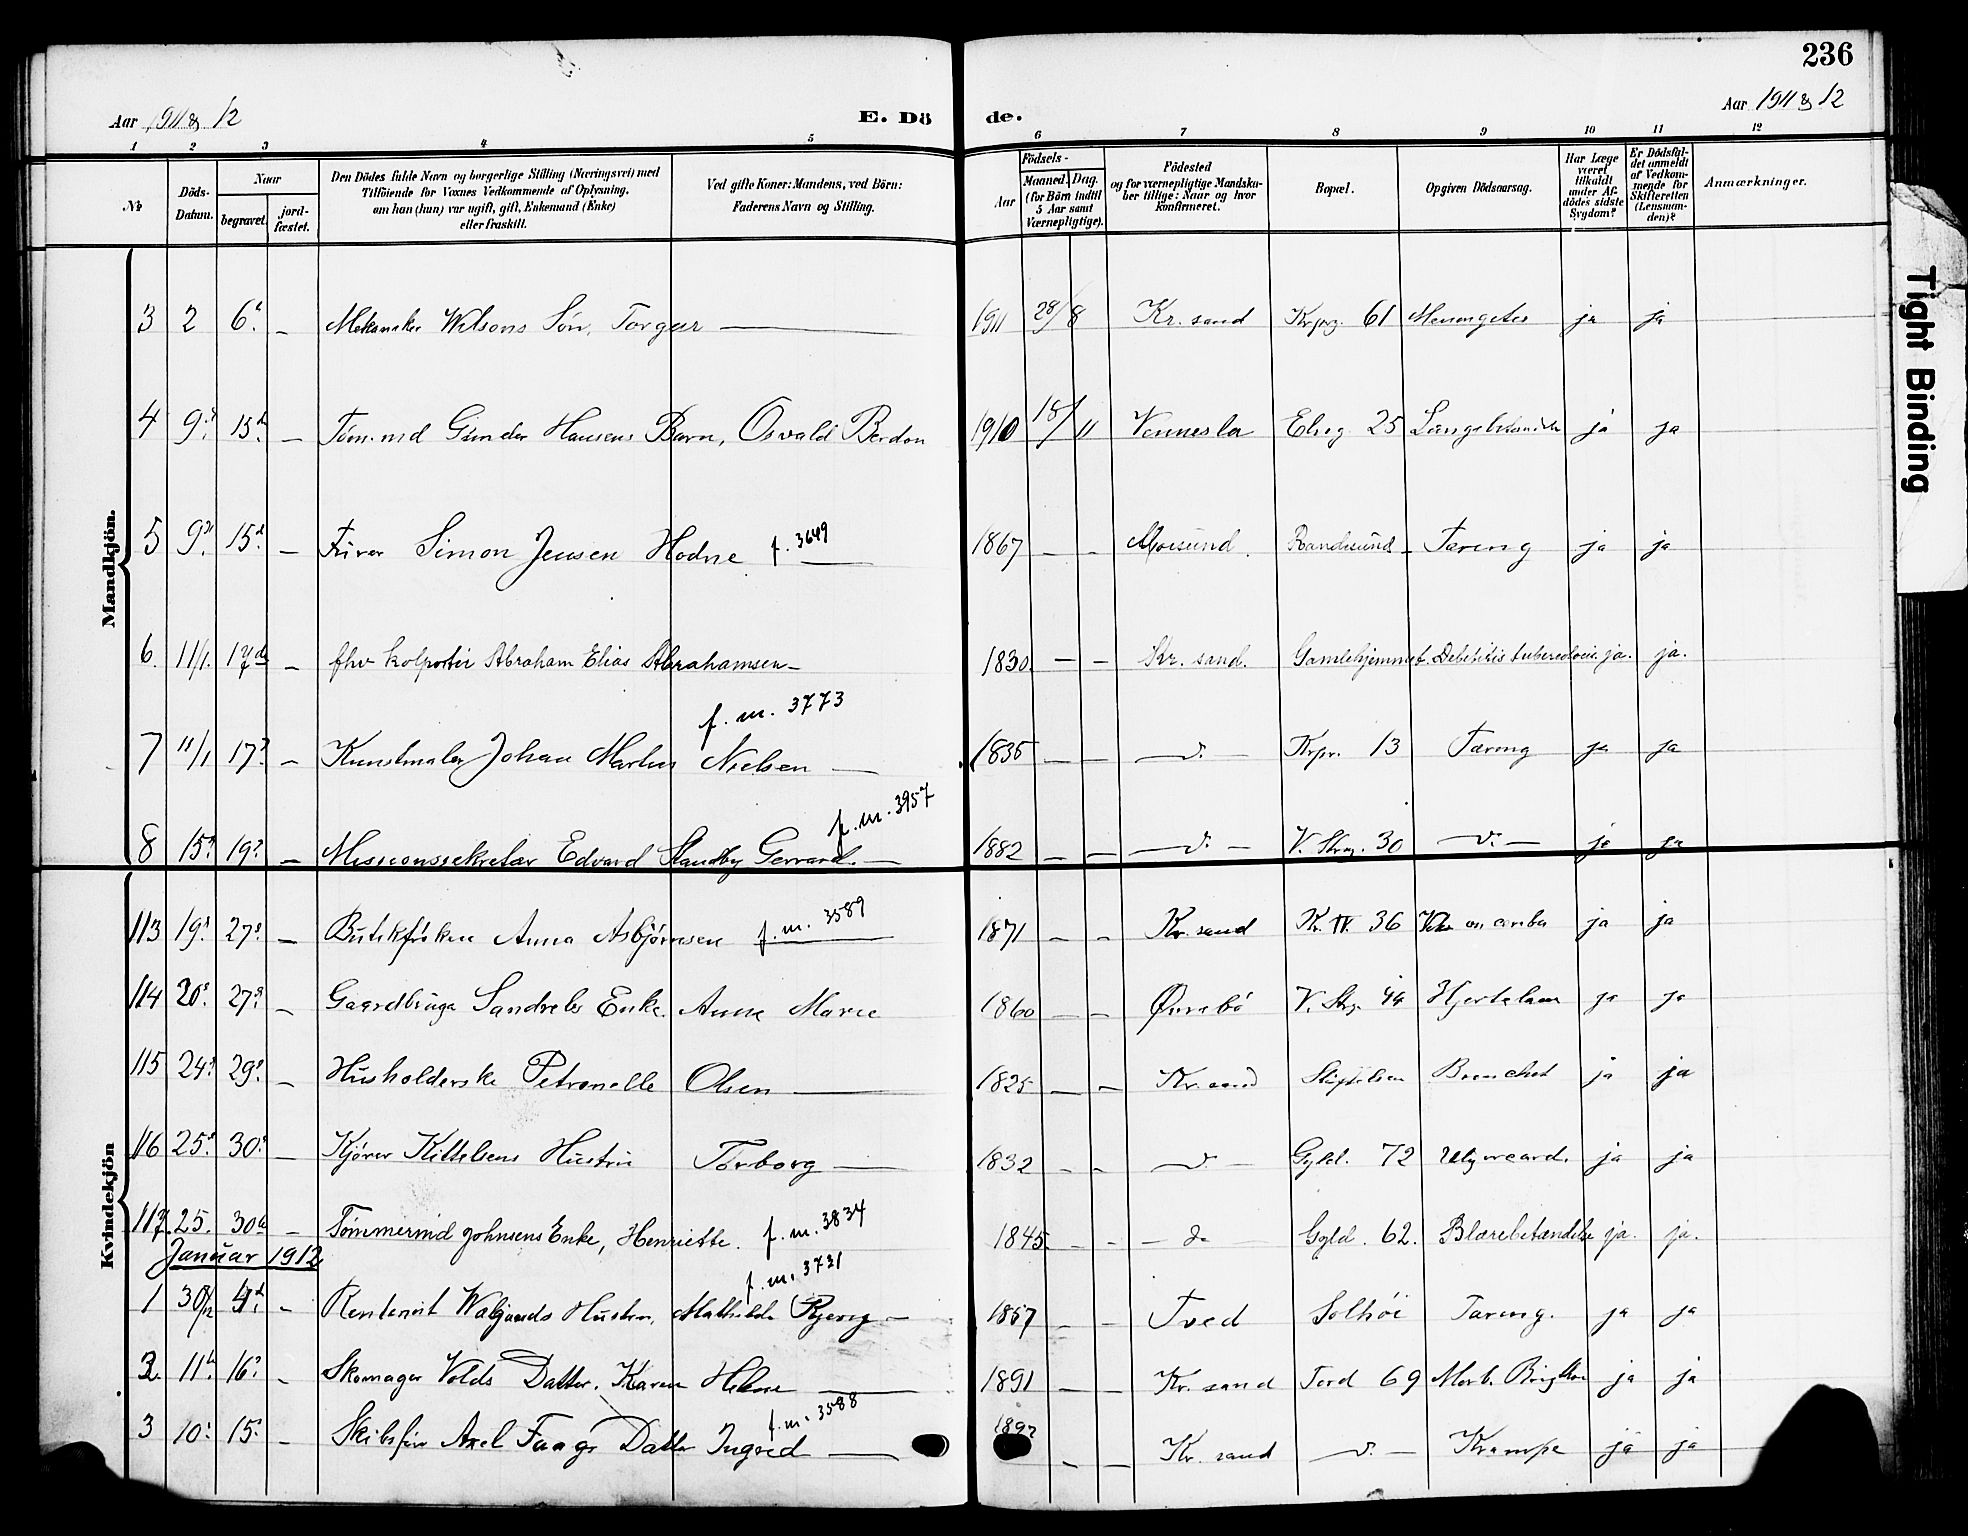 236
Aar 1911 & 12
E. Dö
de.
Aar 1911 & 12
1 2 3 4 5 6 7 8 9 10 11 12
№
Döds-Datum.
Naar
begravet.
jord-fæstet.
Den Dödes fulde Navn og borgerlige Stilling (Næringsvei) med
Tilföiende for Voxnes Vedkommende af Oplysning.
om han (hun) var ugift, gift, Enkemand (Enke)
eller fraskilt.
Ved gifte Koner: Mandens, ved Börn:
Faderens Navn og Stilling.
Födsels-
Aar
Maaned. Dag.
(for Börn indtil
5 Aar samt
Værnepligtige).
Födested
og for værnepligtige Mandska-
ber tillige: Naar og hvor
konfirmeret.
Bopæl.
Opgiven Dödsaarsag.
Har Læge
været
tilkaldt
under Af-
dödes sidste
Sygdom?
Er Dödsfal-
det anmeldt
af Vedkom-
mende for
Skifteretten
(Lensman-
den)?
Anmærkninger.
Tight Binding
Mandkjön.
3 2 6. – Wilsons Sön, Torgeir — 1911 28/8 Kr. sand 61 ja ja
4 9. 15. – Töm.md Gunder Hansens Barn, Osvald Berdon 1910 18/11 Vennesla 25 ja ja
f. 3649
5 9. 15. – Simon Jensen Hodne — 1867 – – Randesund Tæring ja ja
6. 11/1. 17d – fhv kolportør Abraham Elias Abrahamsen – 1830 – – Kr. sand. Gamlehjemmet. tuberculosis ja. ja.
f. m. 3773
7 11/1 17. – Kunstmaler Johan Martin Nielsen — 1835 – – d. – Krpr. 13 Tæring ja ja
f. m. 3957
8 15. 19. – Missionssekretær Edvard Gerrard. — 1882 – – d. – V. Strg. 30 d. – ja ja
Kvindekjön
f. m. 3589
113 19. 27. – Butikfröken Anna Asbjørnsen — 1871 – – Kr. sand Kr. IV. 36 ja ja
114 20. 27. – Enke. Anne Marie 1860 – – Øvrebö V. Strg. ja ja
115 24. 29. – Husholderske Petronelle Olsen — 1825 – – Kr. sand Stiftelsen Bronchit ja ja
116 25. 30. – Kjörer Kittelsens Hustru Torborg — 1832 – – d. – Gyld. 72 ja ja
f. m. 3834
117. 25. 30. – Tömmermd Johnsens Enke, Henriette. 1845. – – d. Gyld. 62. Blærebetændelse ja. ja.
Januar 1912
f. m. 3731
1 30/12 4. – Hustru, Mathilde – 1857 – – Tved Solhöi Tæring. ja ja
2 11. 16. – Skomager Volds Datter. Karen Helene — 1891 – – Kr. sand Tord 69 Morb. Brightii ja ja
f. m. 3588
3 10. 15. – Skibsfør Axel Datter Ingrid — – – Kr. sand d. – Krampe ja ja